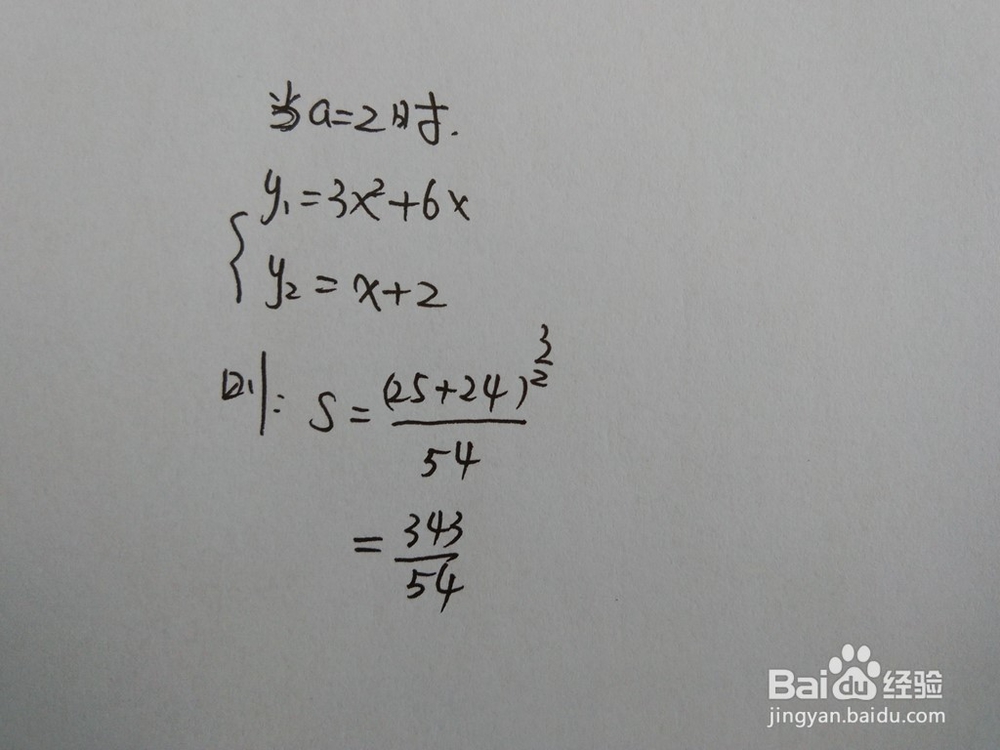 当a=2时.
y₁=3x²+6x
y₂=x+2
则: S=(25+24)^(3/2)/54
=343/54
Baidu经验
jingyan.baidu.com